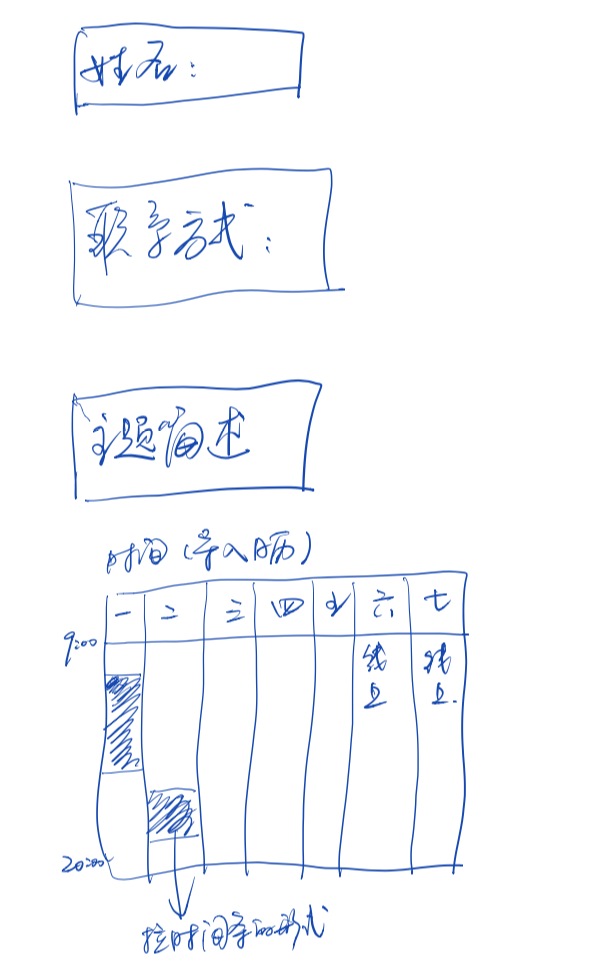 姓名：
联系方式：
主题描述
时间（导入日历）
一 二 三 四 五 六 七
9:00
线上 线上.
20:00
拉时间条的形式